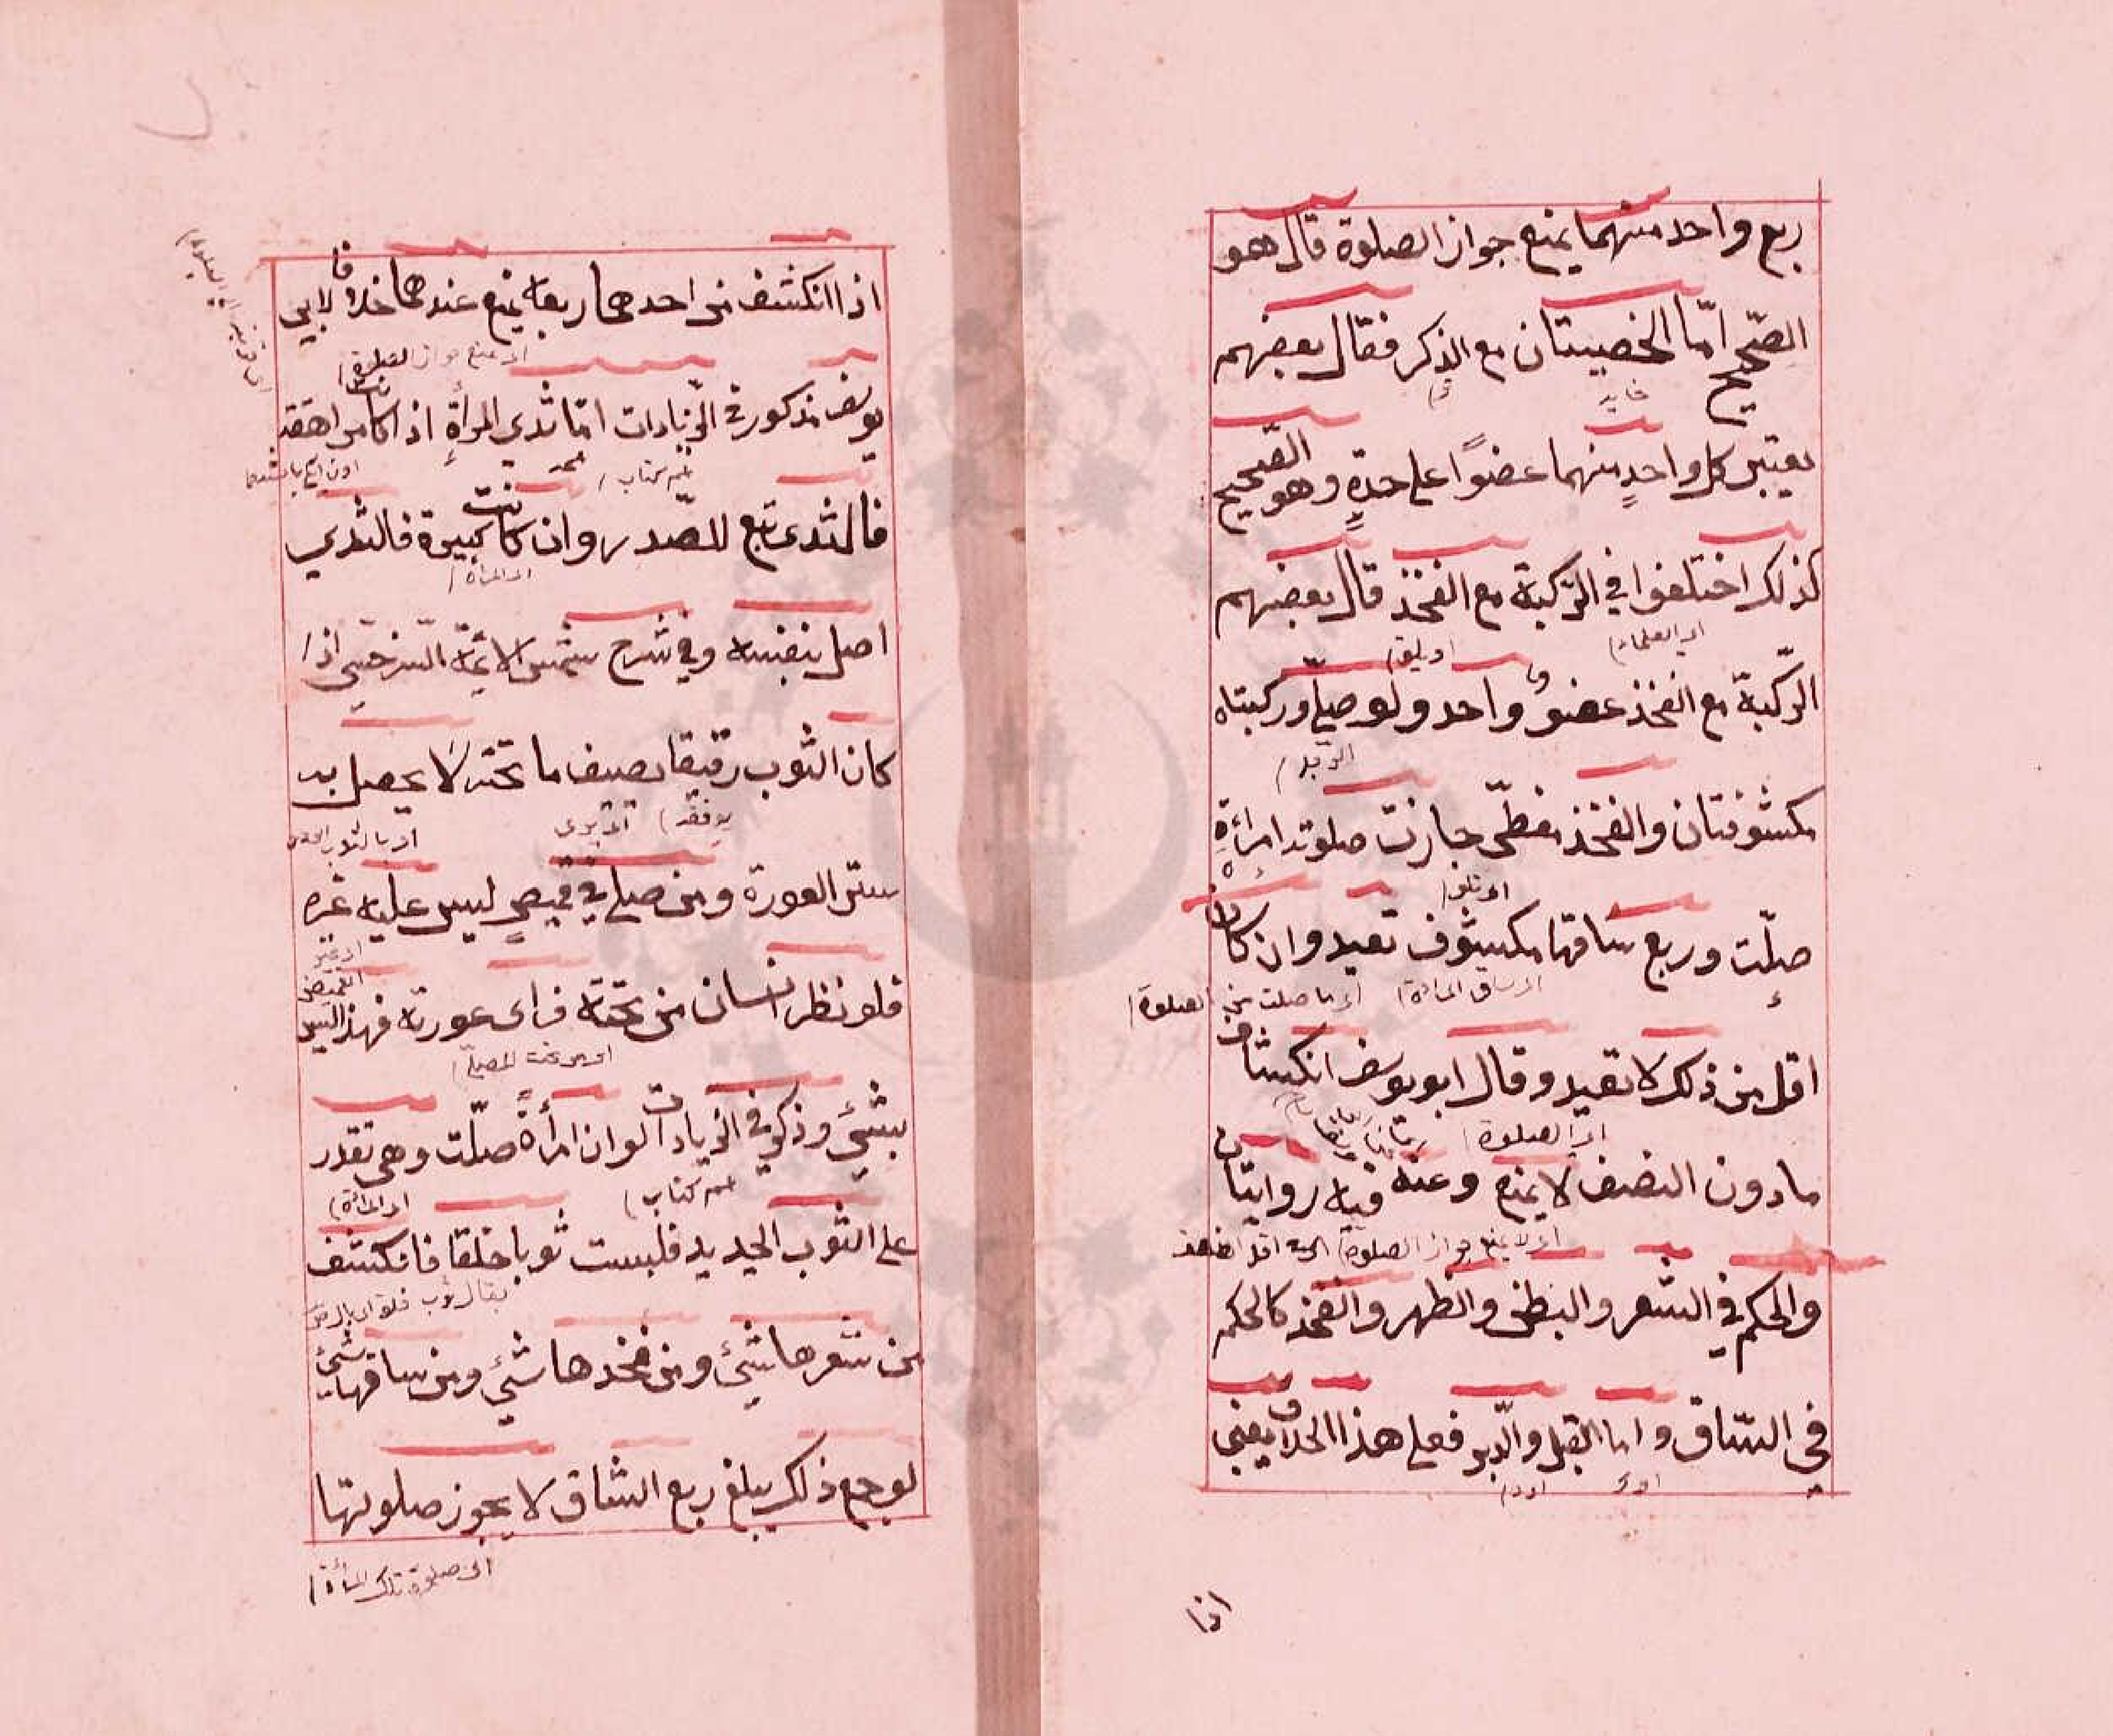 ربع واحد منهما يمنع جواز الصلوة قال هو
الصّحيح امّا الخصيتان مع الذكر فقال بعضهم
يعتبر كل واحدٍ منهما عضوًا على حدةٍ وهو الصّحيح
كذلك اختلفوا في الرّكبة مع الفخذ قال بعضهم
اى العلماء
الرّكبة مع الفخذ عضو واحد ولو صلّى وركبتاه
الرجل
مكشوفتان والفخذ مغطّى جازت صلوته امرأة
صلّت وربع ساقها مكشوف تعيد وان كان
اى ساق المرأة
اى ما صلت من الصلوة
اقل من ذلك لا تعيد وقال ابو يوسف انكشاف
اى الصلوة
ما دون النصف لا يمنع وعنه فيه روايتان
اى لا يمنع جواز الصلوة
والحكم في الشعر والبطن والظهر والفخذ كالحكم
في السّاق واما القبل والدّبر فعلى هذا الخلاف يعني
اذا
اذا انكشف من احدهما ربعه يمنع عندهما خلافا لابي
اى يمنع جواز الصلوة
يوسف مذكور في الزّيادات امّا ثدي المرأة اذا كانت مراهقة
اسم كتاب
فالثدي تبع للصّدر وان كانت كبيرة فالثدي
اى المرأة
اصل بنفسه وفي شرح شمس الائمّة السّرخسي اذا
كان الثوب رقيقا يصف ما تحته لا يحصل به
ستر العورة ومن صلى في قميصٍ ليس عليه غيره
اى غير القميص
فلو نظر انسان من تحته فراى عورته فهذا ليس
اى من تحت المصلّى
بشيء وذكر في الزيادات لو ان امرأةً صلّت وهي تقدر
اسم كتاب
اى المرأة
على الثوب الجديد فلبست ثوبا خلقا فانكشف
يقال ثوب خلق اى بالى
من شعرها شيئ ومن فخذها شيئ ومن ساقها شيئ
لو جمع ذلك يبلغ ربع السّاق لا يجوز صلوتها
اى صلوة تلك المرأة